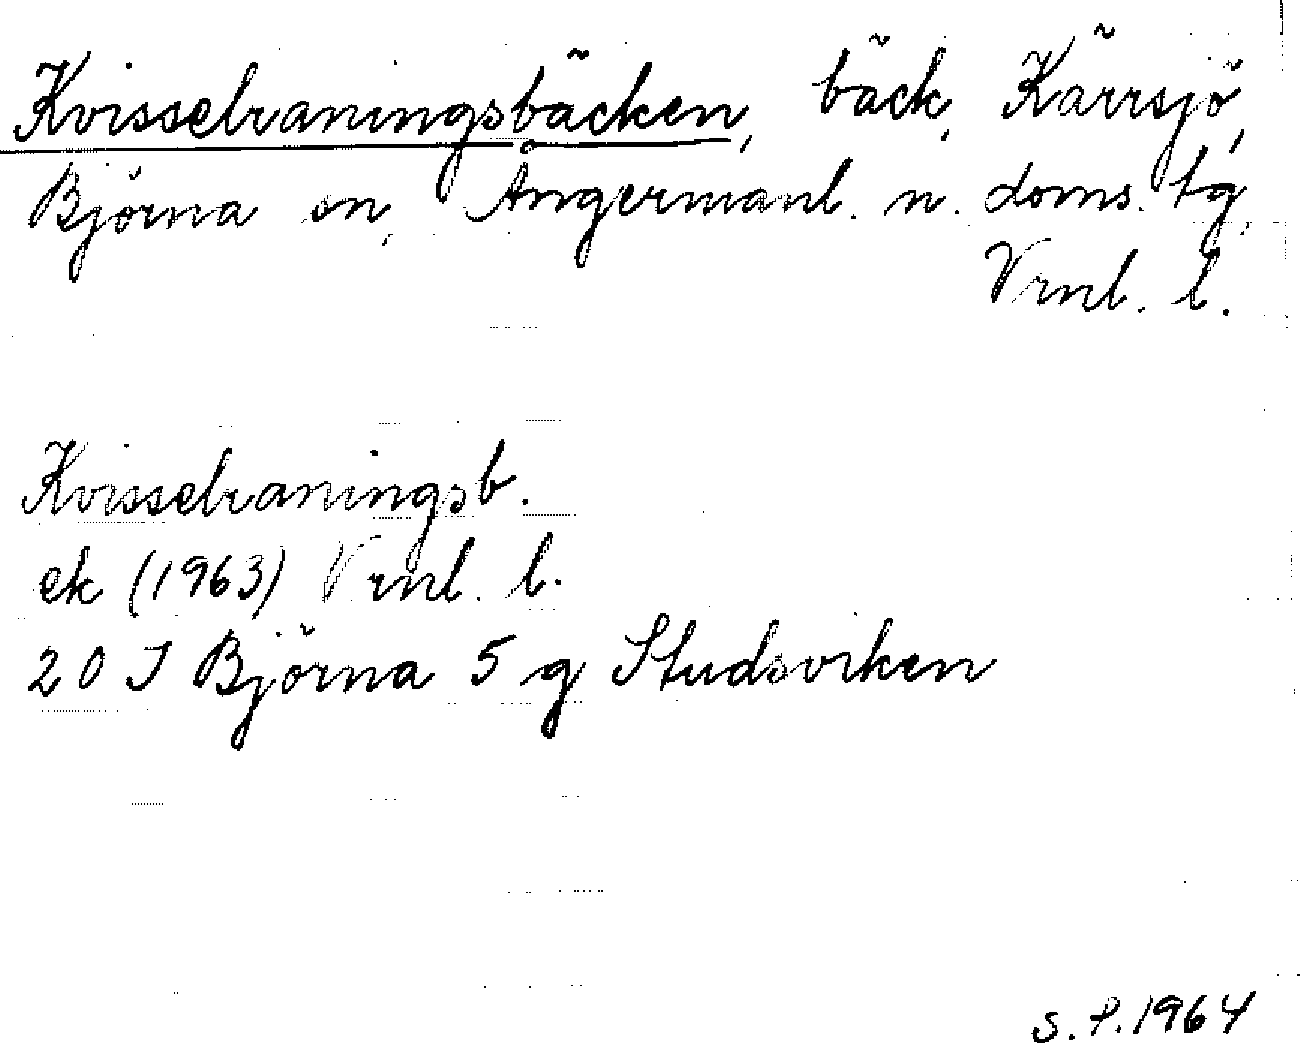 Kvisselraningsbäcken, bäck, Kärrsjö,
Björna sn, Ångermanl. n. doms. tg,
Vrnl. l.
Kvisselraningsb.
ek (1963) Vrnl. l.
20 J Björna 5 g Studsviken
S. P. 1964